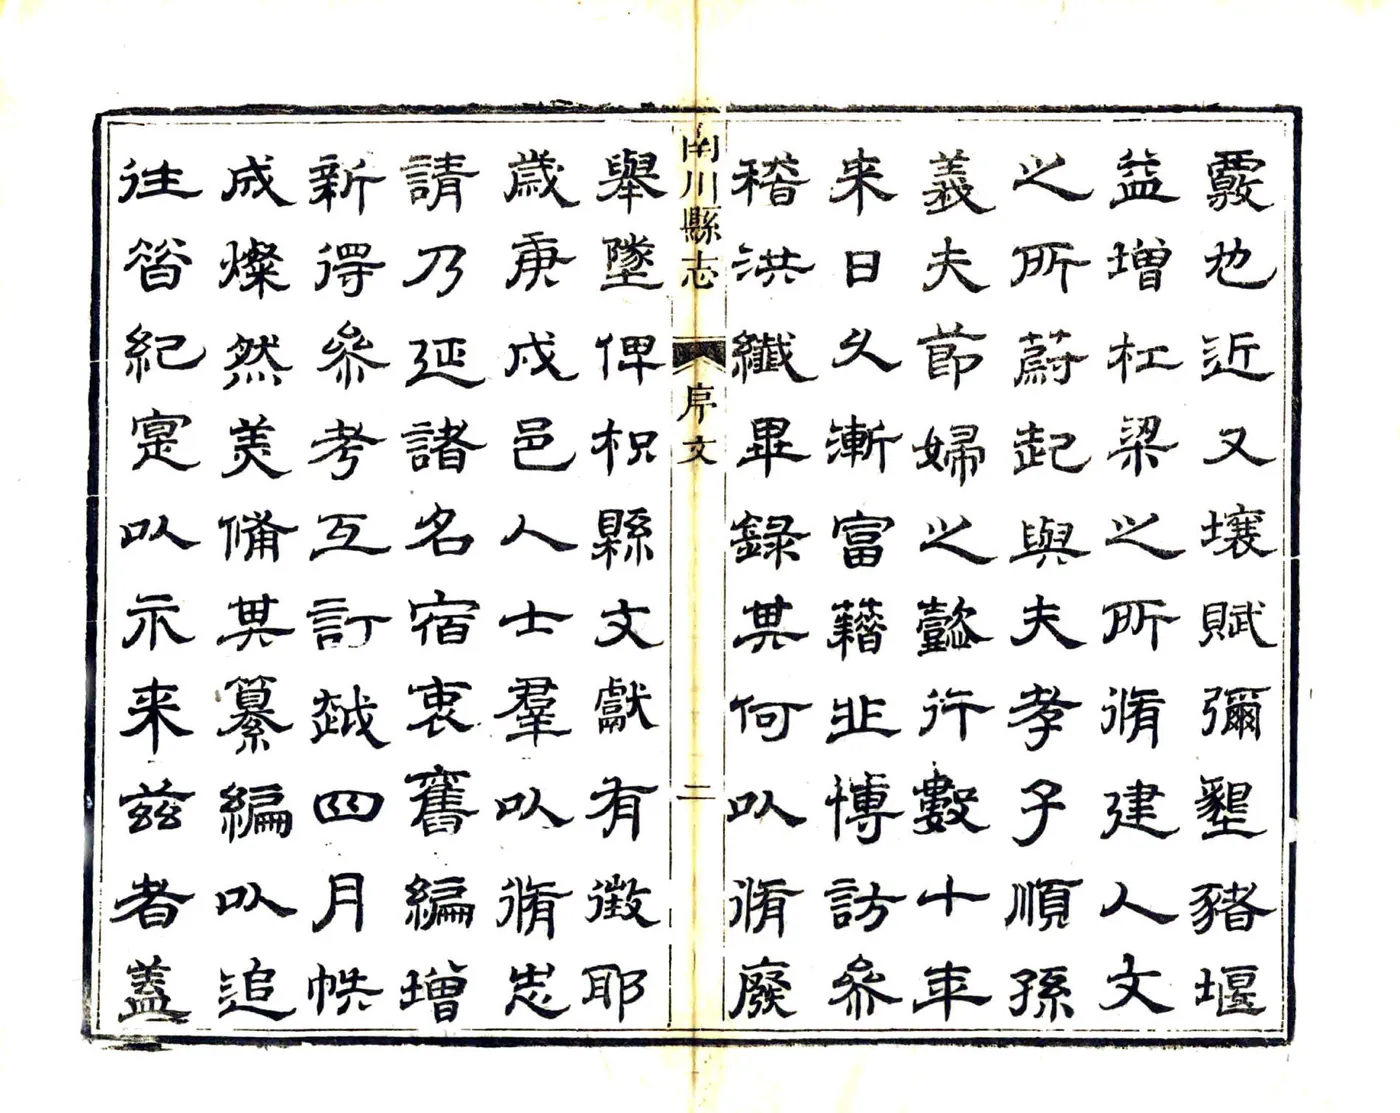 覈也近又壤賦彌墾豬堰
益增杠梁之所脩建人文
之所蔚起與夫孝子順孫
義夫節婦之懿行數十年
来日久漸富藉非博訪參
稽洪纖畢錄其何以脩廢
南川縣志 序文 二
舉墜俾枳縣文獻有徵耶
歲庚戌邑人士羣以脩志
請乃延諸名宿衷舊編增
新得參考互訂越四月帙
成燦然美備其纂編以追
往昝紀寔以示来茲者蓋